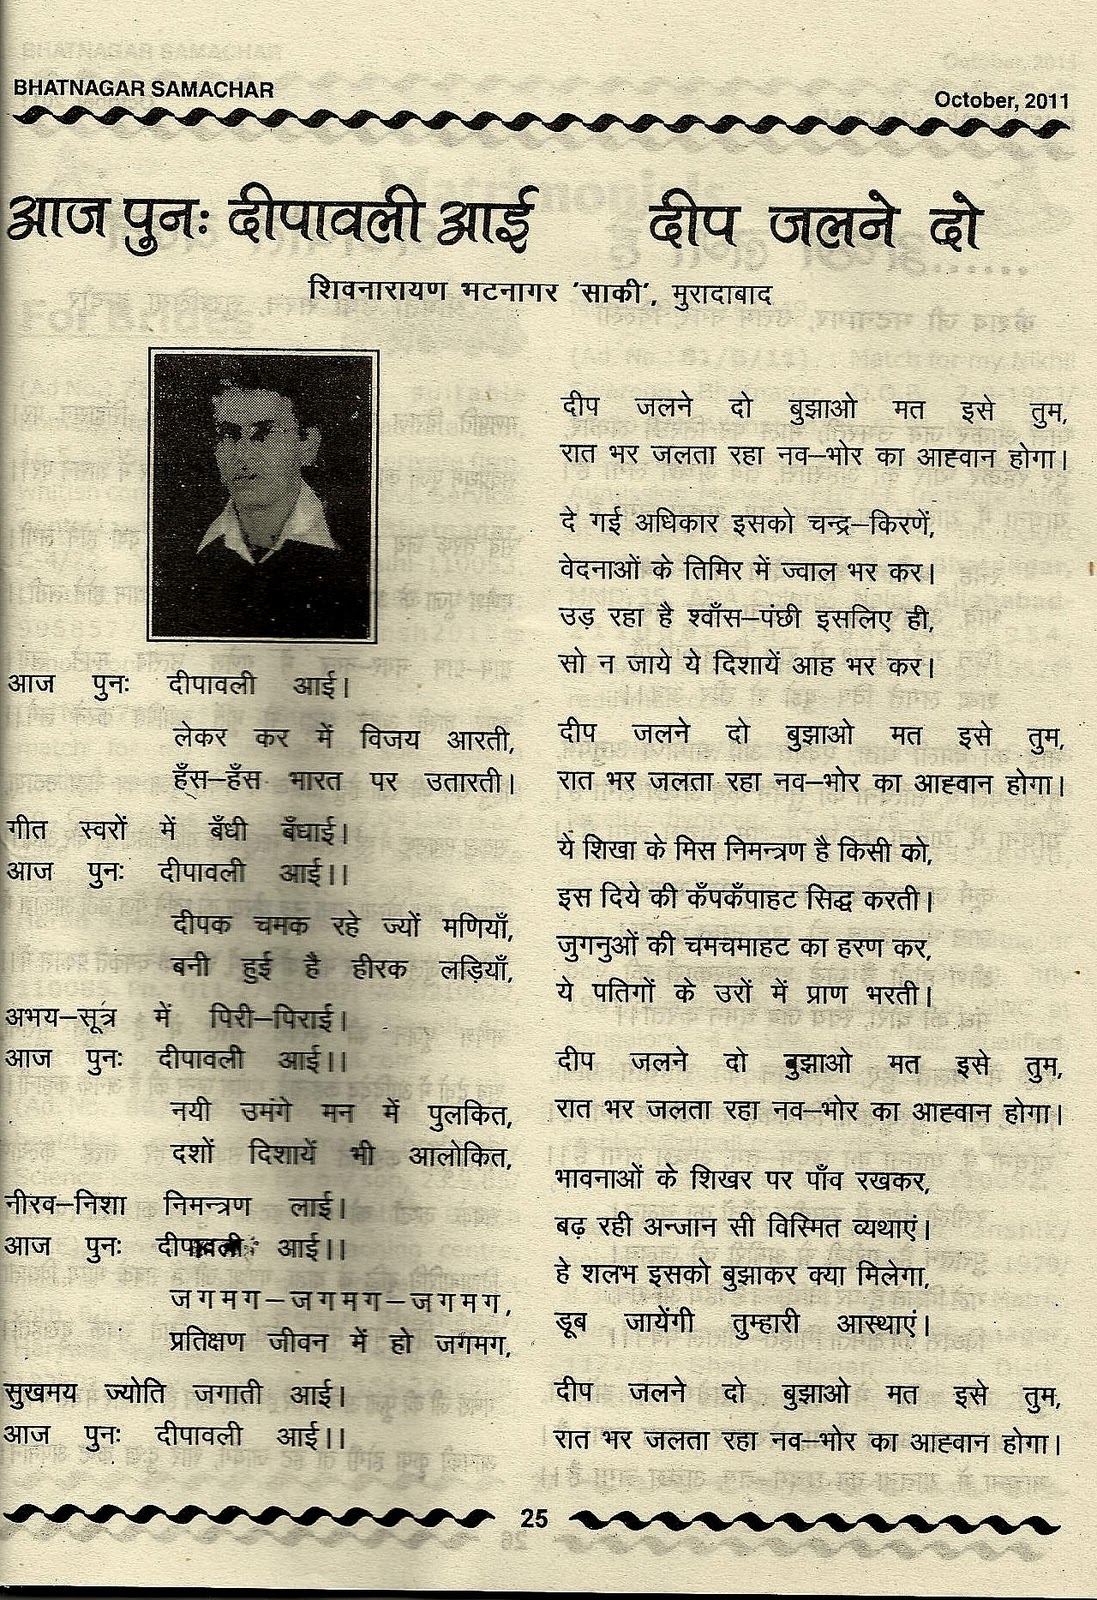 BHATNAGAR SAMACHAR
October, 2011
आज पुनः दीपावली आई
दीप जलने दो
शिवनारायण भटनागर 'साकी', मुरादाबाद
आज पुनः दीपावली आई।
लेकर कर में विजय आरती,
हँस–हँस भारत पर उतारती।
गीत स्वरों में बँधी बँधाई।
आज पुनः दीपावली आई।।
दीपक चमक रहे ज्यों मणियाँ,
बनी हुई है हीरक लड़ियाँ,
अभय–सूत्र में पिरी–पिराई।
आज पुनः दीपावली आई।।
नयी उमंगे मन में पुलकित,
दशों दिशायें भी आलोकित,
नीरव–निशा निमन्त्रण लाई।
आज पुनः दीपावली आई।।
जगमग–जगमग–जगमग,
प्रतिक्षण जीवन में हो जगमग,
सुखमय ज्योति जगाती आई।
आज पुनः दीपावली आई।।
दीप जलने दो बुझाओ मत इसे तुम,
रात भर जलता रहा नव–भोर का आह्वान होगा।
दे गई अधिकार इसको चन्द्र–किरणें,
वेदनाओं के तिमिर में ज्वाल भर कर।
उड़ रहा है श्वाँस–पंछी इसलिए ही,
सो न जाये ये दिशायें आह भर कर।
दीप जलने दो बुझाओ मत इसे तुम,
रात भर जलता रहा नव–भोर का आह्वान होगा।
ये शिखा के मिस निमन्त्रण है किसी को,
इस दिये की कँपकँपाहट सिद्ध करती।
जुगनुओं की चमचमाहट का हरण कर,
ये पतिगों के उरों में प्राण भरती।
दीप जलने दो बुझाओ मत इसे तुम,
रात भर जलता रहा नव–भोर का आह्वान होगा।
भावनाओं के शिखर पर पाँव रखकर,
बढ़ रही अन्जान सी विस्मित व्यथाएं।
हे शलभ इसको बुझाकर क्या मिलेगा,
डूब जायेंगी तुम्हारी आस्थाएं।
दीप जलने दो बुझाओ मत इसे तुम,
रात भर जलता रहा नव–भोर का आह्वान होगा।
25